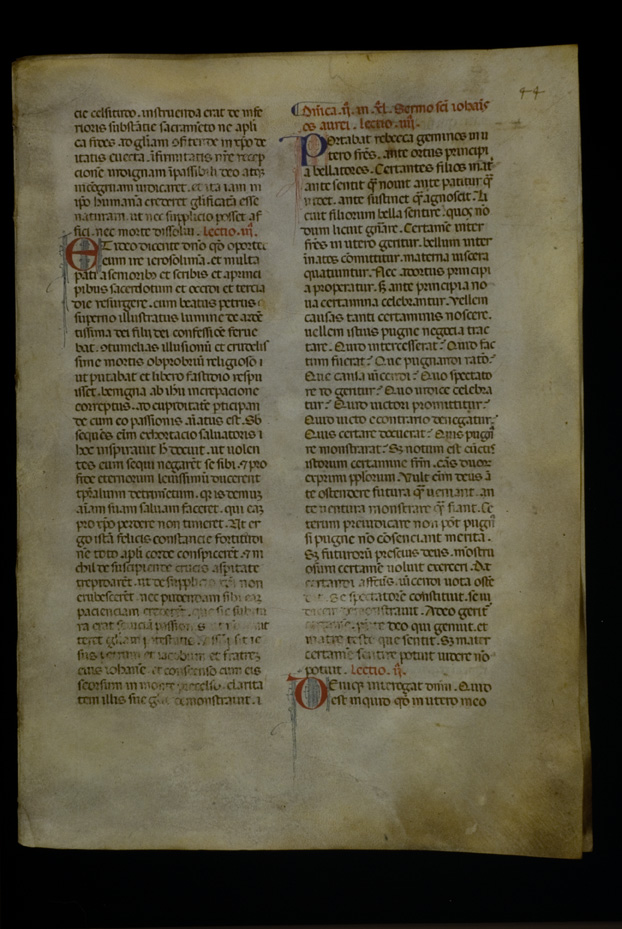 44
cie celsitudo. instruenda erat de infe
rioris substãtie sacramẽto ne apli
ca fides ad gl̃iam ꝯfitẽde in xp̃o de
itatis euecta. ĩfirmitatis nr̃e recep
cionẽ indignam ĩpassibili deo atqꝫ
incognitam iudicaret. et ita iam in
xp̃o humanã crederet glificatã esse
naturam. ut nec supplicio posset af
fici. nec morte dissolui. lectio. iii.
ET ideo dicente dn̄o qđ oportet
eum ire ierosolimã. et multa
pati a senioribꝫ et scribis et a princi
pibus sacerdotum et occidi et tercia
die resurgere. cum beatus petrus
superno illustratus lumine de arđẽ
tissima dei filii dei confessiõe ferue
bat. ꝯtumelias illusionũ et crudelis
sime mortis obprobriũ religioso
ut putabat et libero fastidio respu
isset. benigna ab ih̃u increpacione
correptus. ad cupiditatẽ participan
de cum eo passionis aĩatus est. Sꝫ
sequẽs eĩm exhortacio saluatoris
hoc inspirauit
tes eum sequi negarẽt se sibi. ⁊ pro
spe eternorum leuissimũ ducerent
tp̃alium detrimẽtum. q̃ is demuꝫ
aĩam suam saluam faceret. qui eaꝫ
pro xp̃o perdere non timeret. Ut er
go istã felicis constancie fortitudi
nẽ toto apli corde conspicerẽt. ⁊ ni
chil de suscipiende crucis aspitate
trepidarẽt. ut de supplicio xp̃i non
erubescerẽt. nec pudendam sibi eaꝫ
pacienciam
ra erat seuicia passionis
teret gl̃iam
sus petrum et iacobum et fratreꝫ
eius iohanẽ. et conscenso cum eis
seorsum in monte precelso. clarita
tem illis sue glie demonstrauit.
Dñica. ii. in xl. Sermo sc̃i iohãis
os aurei. lectio. iiii.
Portabat rebecca geminos in u
tero fr̃es. ante ortus principi
a bellatores. Certantes filios mat̃
ante sentit q̃ nouit. ante patitur q̃
uidet. ante sustinet q̃ agnoscit. Li
cuit filiorum bella sentire. quos nõ
dum licuit gñare. Certamẽ inter
fr̃es in utero geritur. bellum inter
ĩnatos committitur. materna uiscera
quatiuntur. Nec ad ortus principi
a properatur. sꝫ ante principia no
ua certamina celebrantur. Vellem
causas tanti certaminis noscere.
uellem istius pugne negocia trac
tare. Quid intercesserat? Quid fac
tum fuerat? Que pugnandi ratio?
Que causa uincendi? Quo spectato
re res geritur? Quo iudice celebra
tur? Quid uictori promittitur?
Quid uicto e contrario denegatur?
Quis certare docuerat? Quis pugñ
re monstrarat? Sꝫ notum est cũctis
istorum certamine
exprimi ppl̃orum. Vult eĩm deus ã
te ostendere futura q̃ ueniant. an
te uentura monstrare q̃ fiant. Ce
terum preiudicare non pot̃ pugñ
si pugne nõ cõsenciant merita.
Sꝫ futurorũ prescius deus. mõstru
osum certamẽ uoluit exerceri. Dat
certandi affectus. uĩcendi uota oste
dit. Se spectatorẽ constituit. se iu
dicem demonstrauit. A deo gerit̃
certamẽ. parte deo qui gemuit. et
matre teste que sentit. Sꝫ mater
certamẽ sentire potuit. uidere nõ
potuit. lectio. ii.
DEniqꝫ interrogat dñm. Quid
est inquid qđ in utero meo